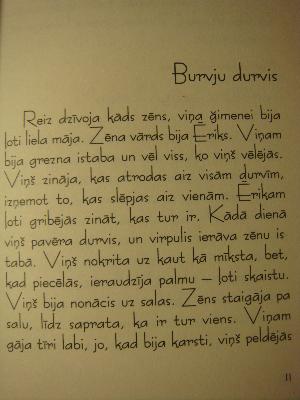 Burvju durvis
Reiz dzīvoja kāds zēns, viņa ģimenei bija
ļoti liela māja. Zēna vārds bija Ēriks. Viņam
bija grezna istaba un vēl viss, ko viņš vēlējās.
Viņš zināja, kas atrodas aiz visām durvīm,
izņemot to, kas slēpjas aiz vienām. Ērikam
ļoti gribējās zināt, kas tur ir. Kādā dienā
viņš pavēra durvis, un virpulis ierāva zēnu is
tabā. Viņš nokrita uz kaut kā mīksta, bet,
kad piecēlās, ieraudzīja palmu – ļoti skaistu.
Viņš bija nonācis uz salas. Zēns staigāja pa
salu, līdz saprata, ka ir tur viens. Viņam
gāja tīri labi, jo, kad bija karsti, viņš peldējās
11